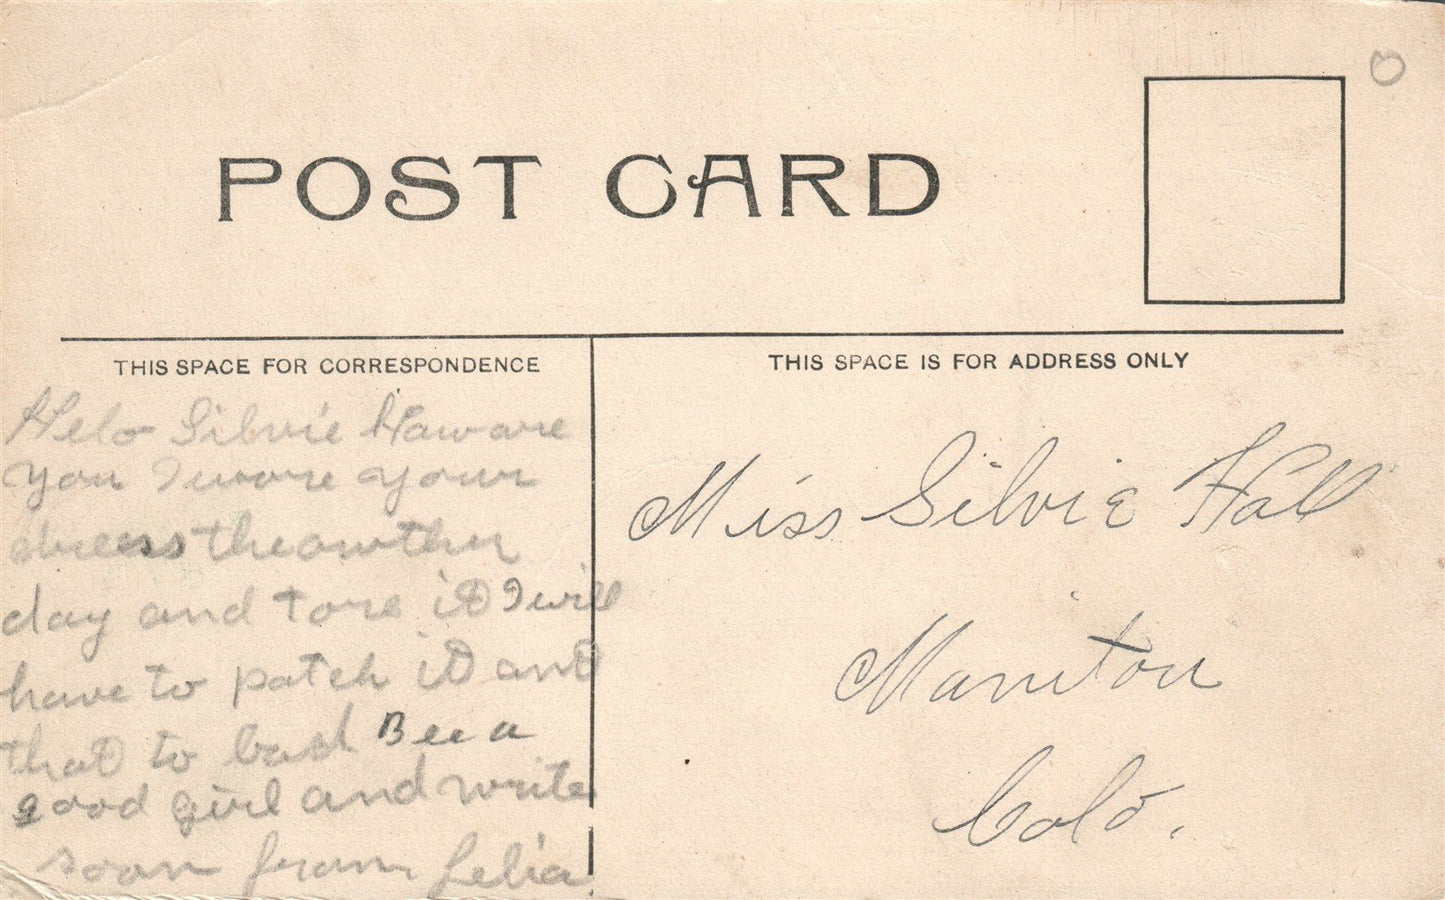 POST CARD
THIS SPACE FOR CORRESPONDENCE
THIS SPACE IS FOR ADDRESS ONLY
Helo Silvie Haw are
you I wore your
dress the outher
day and tore it I will
have to patch it and
that to bad Bee a
good girl and write
soon from Lelia
Miss Silvie Hall
Maniton
Colo.